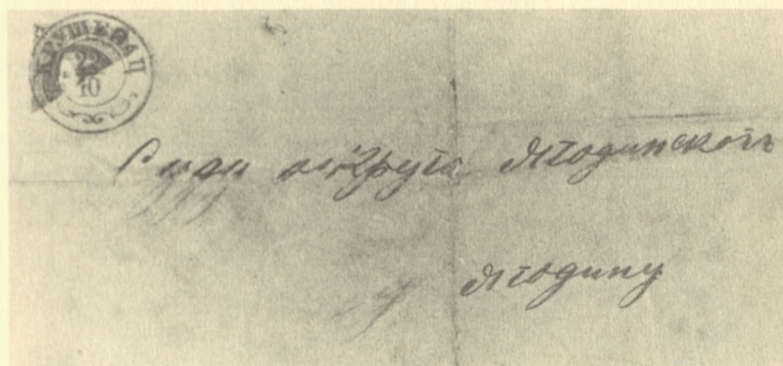 КРУШЕВАЦ
22
10
Суду округа Ягодинскогъ
Ягодину